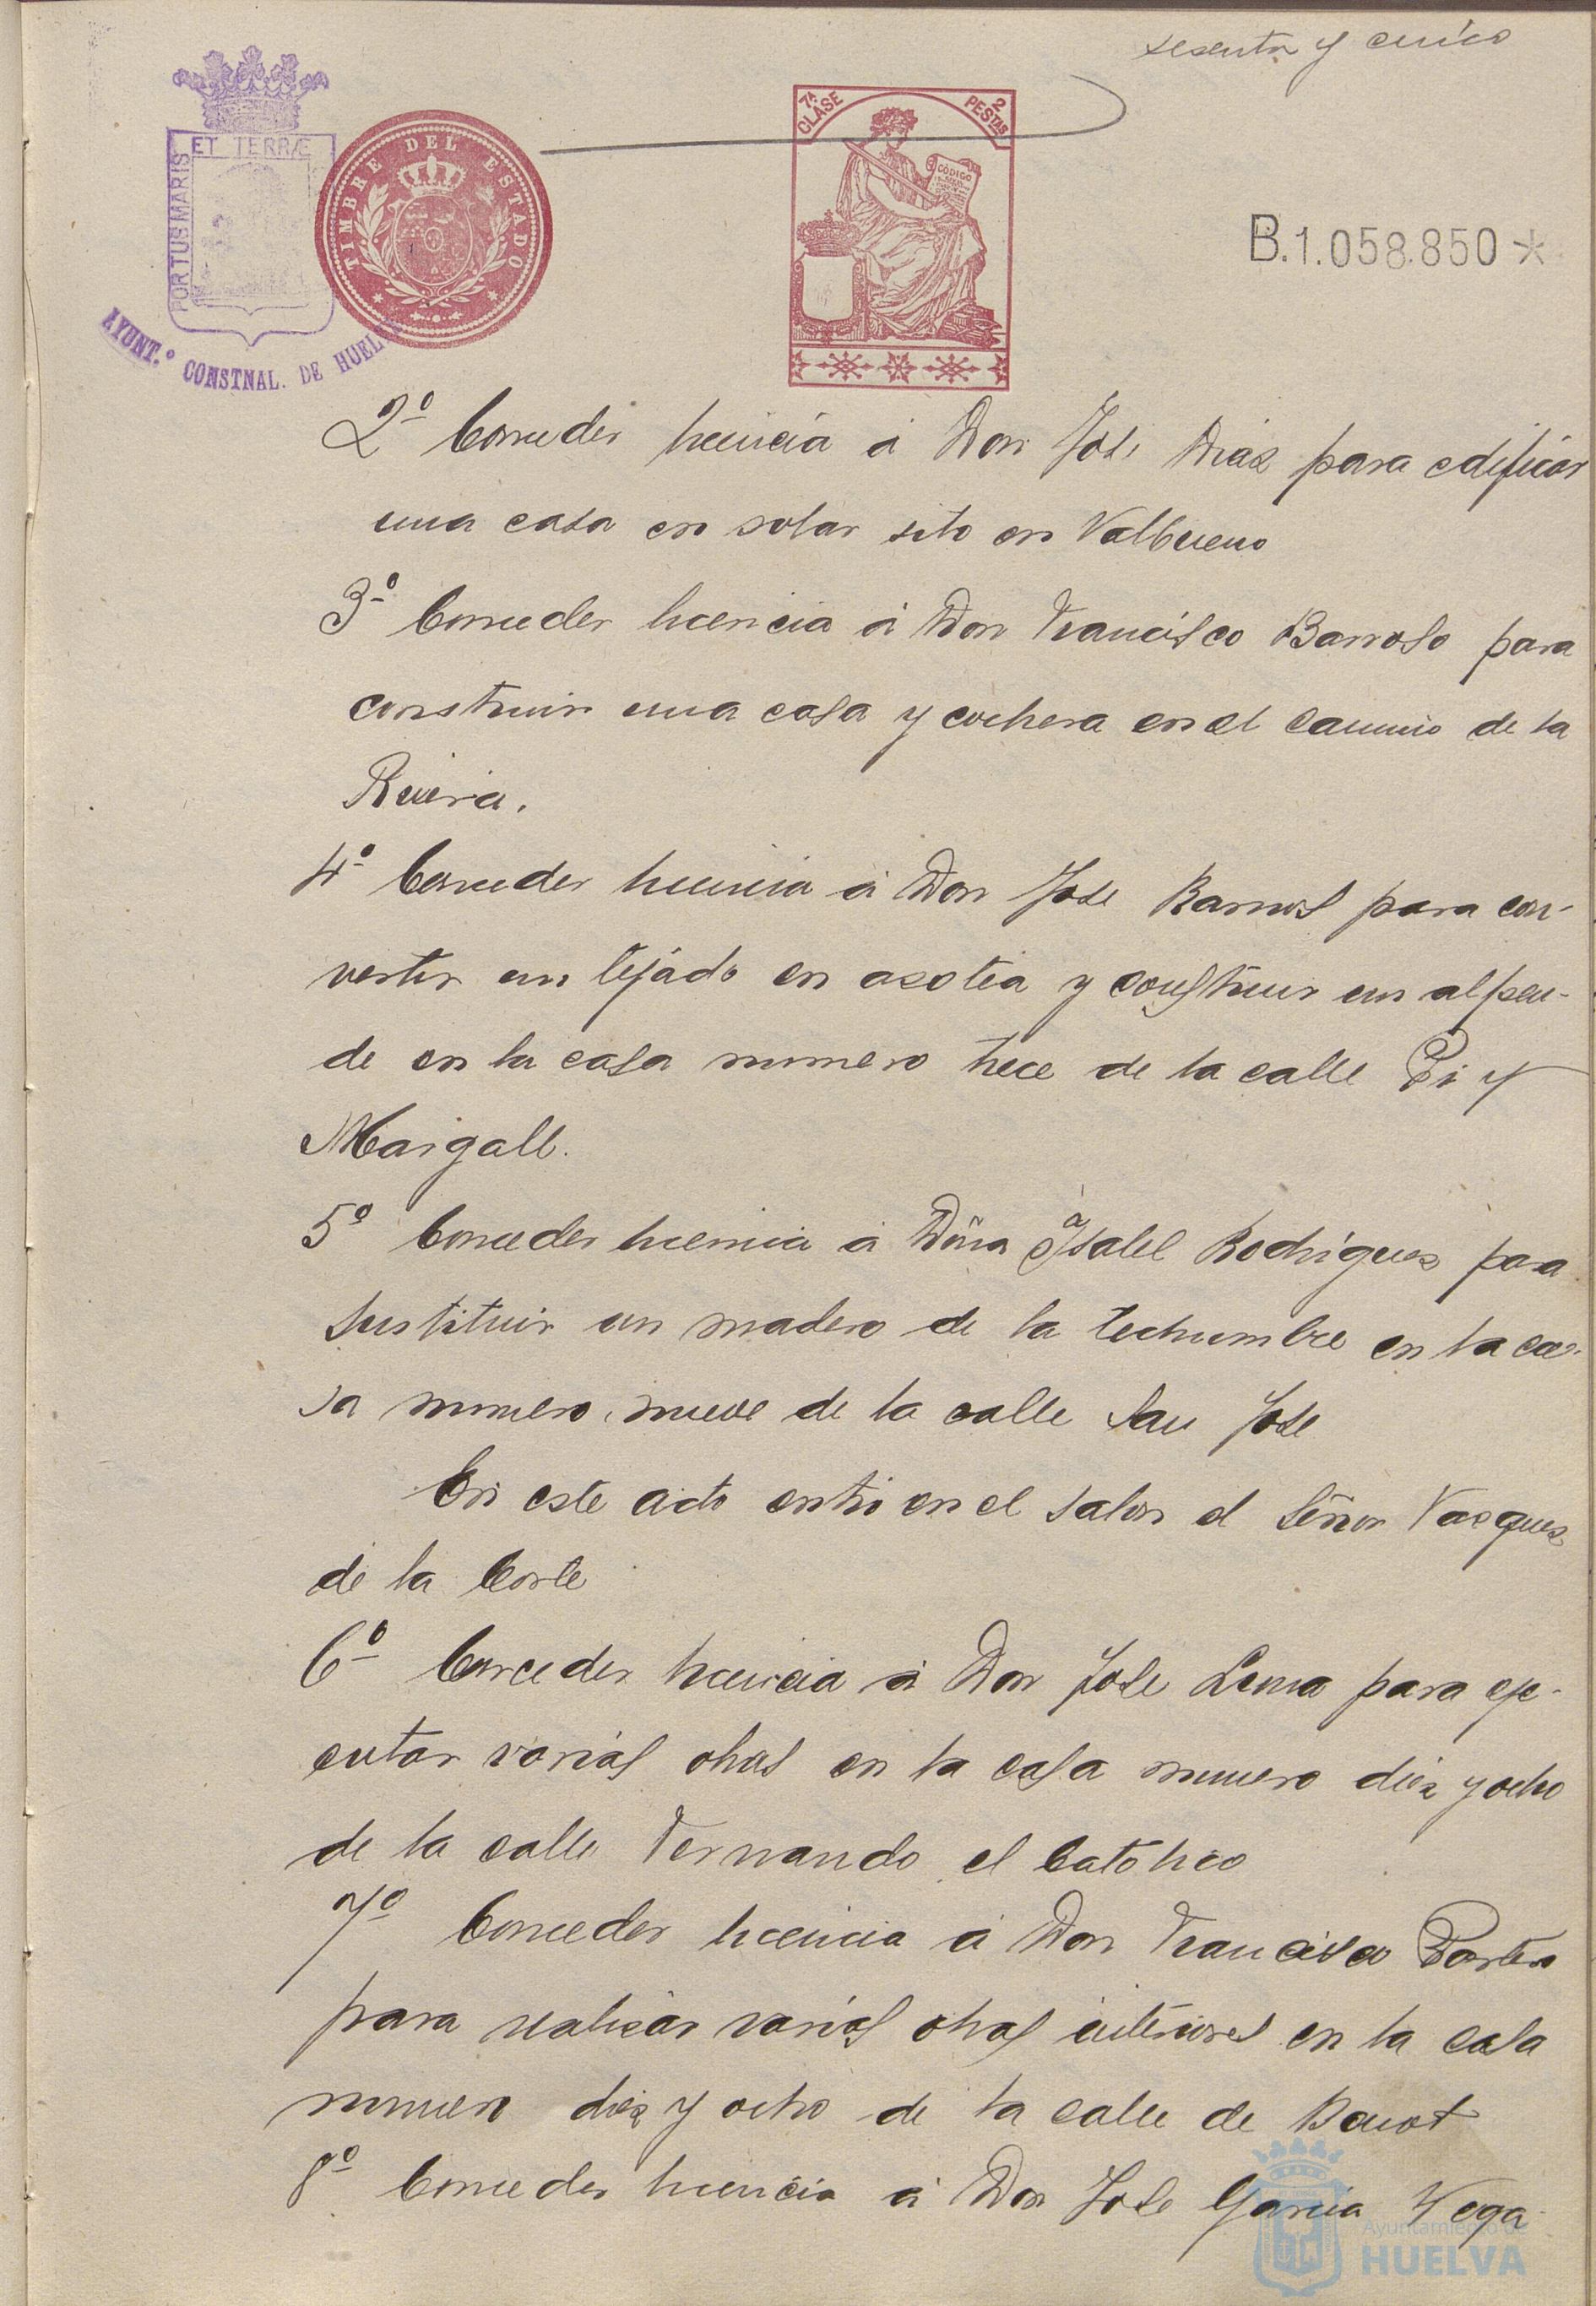 sesenta y cinco
ET TERRÆ
PORTUS MARIS
AYUNT.º CONSTNAL. DE HUELVA
TIMBRE DEL ESTADO
7ª CLASE
2 PESTAS
CÓDIGO
B.1.058.850*
2º Conceder licencia á Don José Diaz para edificar
una casa en solar sito en Valbueno
3º Conceder licencia á Don Francisco Barroso para
construir una casa y cochera en el camino de la
Rivera.
4º Conceder licencia á Don José Ramos para con-
vertir un tejado en asotea y construir un alpen-
de en la casa numero trece de la calle Pi y
Margall.
5º Conceder licencia á Doña Isabel Rodriguez para
sustituir un madero de la techumbre en la ca-
sa numero nueve de la calle San José
En este acto entró en el salon el Señor Vazquez
de la Corte
6º Conceder licencia á Don José Lema para eje-
cutar varias obras en la casa numero diez y ocho
de la calle Fernando el Católico
7º Conceder licencia á Don Francisco Portero
para realizar varias obras interiores en la casa
numero diez y ocho de la calle de
8º Conceder licencia á Don José Garcia Vega
Ayuntamiento de
HUELVA